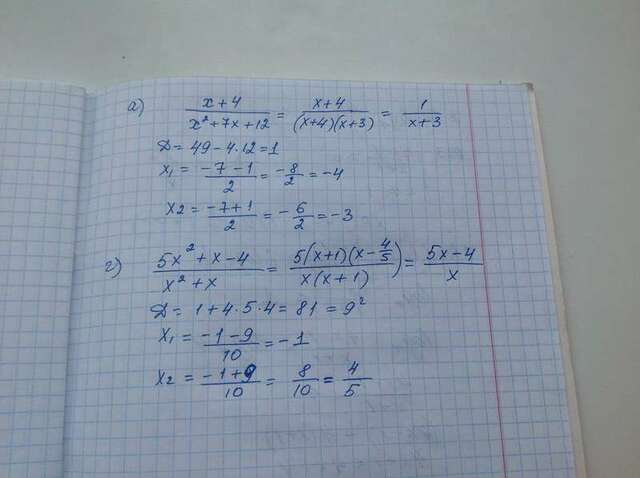 а) (x+4)/(x²+7x+12) = (x+4)/((x+4)(x+3)) = 1/(x+3)
D = 49 - 4·12 = 1
x₁ = (-7-1)/2 = -8/2 = -4
x2 = (-7+1)/2 = -6/2 = -3
г) (5x²+x-4)/(x²+x) = (5(x+1)(x-4/5))/(x(x+1)) = (5x-4)/x
D = 1+4·5·4 = 81 = 9²
x₁ = (-1-9)/10 = -1
x2 = (-1+9)/10 = 8/10 = 4/5